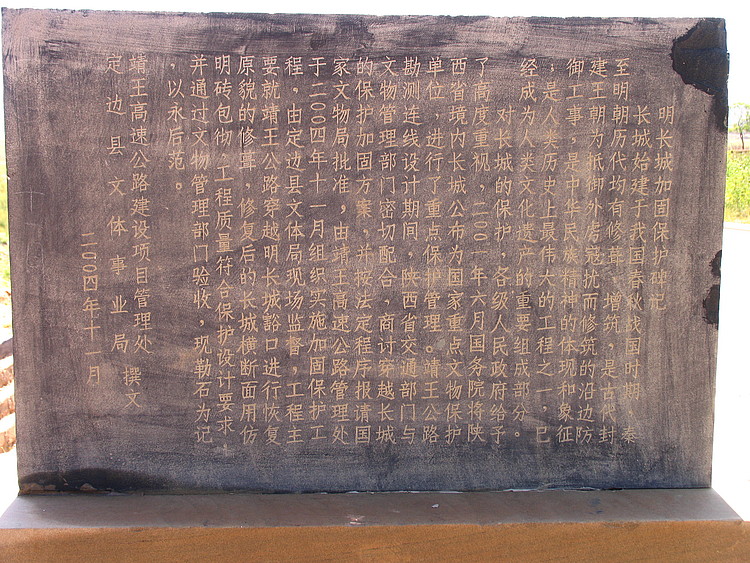 明长城加固保护碑记
长城始建于我国春秋战国时期，秦
至明朝历代均有修葺、增筑，是古代封
建王朝为抵御外虏寇扰而修筑的沿边防
御工事，是中华民族精神的体现和象征
，是人类历史上最伟大的工程之一，已
经成为人类文化遗产的重要组成部分。
对长城的保护，各级人民政府给予
了高度重视，二00一年六月国务院将陕
西省境内长城公布为国家重点文物保护
单位，进行了重点保护管理。靖王公路
勘测连线设计期间，陕西省交通部门与
文物管理部门密切配合，商讨穿越长城
的保护加固方案，并按法定程序报请国
家文物局批准，由靖王高速公路管理处
于二00四年十一月组织实施加固保护工
程，由定边县文体局现场监督，工程主
要就靖王公路穿越明长城豁口进行恢复
原貌的修葺，修复后的长城横断面用仿
明砖包彻，工程质量符合保护设计要求
并通过文物管理部门验收，现勒石为记
，以永后范。
靖王高速公路建设项目管理处
定边县文体事业局 撰文
二00四年十一月